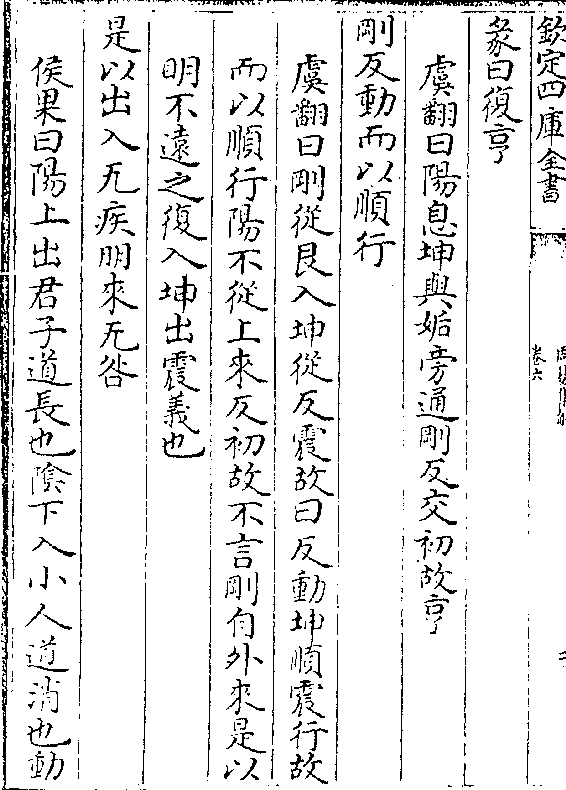 欽定四庫全書
卷六
彖曰復亨
虞翻曰陽息坤與姤旁通剛反交初故亨
剛反動而以順行
虞翻曰剛從艮入坤從反震故曰反動坤順震行故
而以順行陽不從上來反初故不言剛自外來是以
明不遠之復入坤出震義也
是以出入无疾朋來无咎
侯果曰陽上出君子道長也陰下入小人道消也動